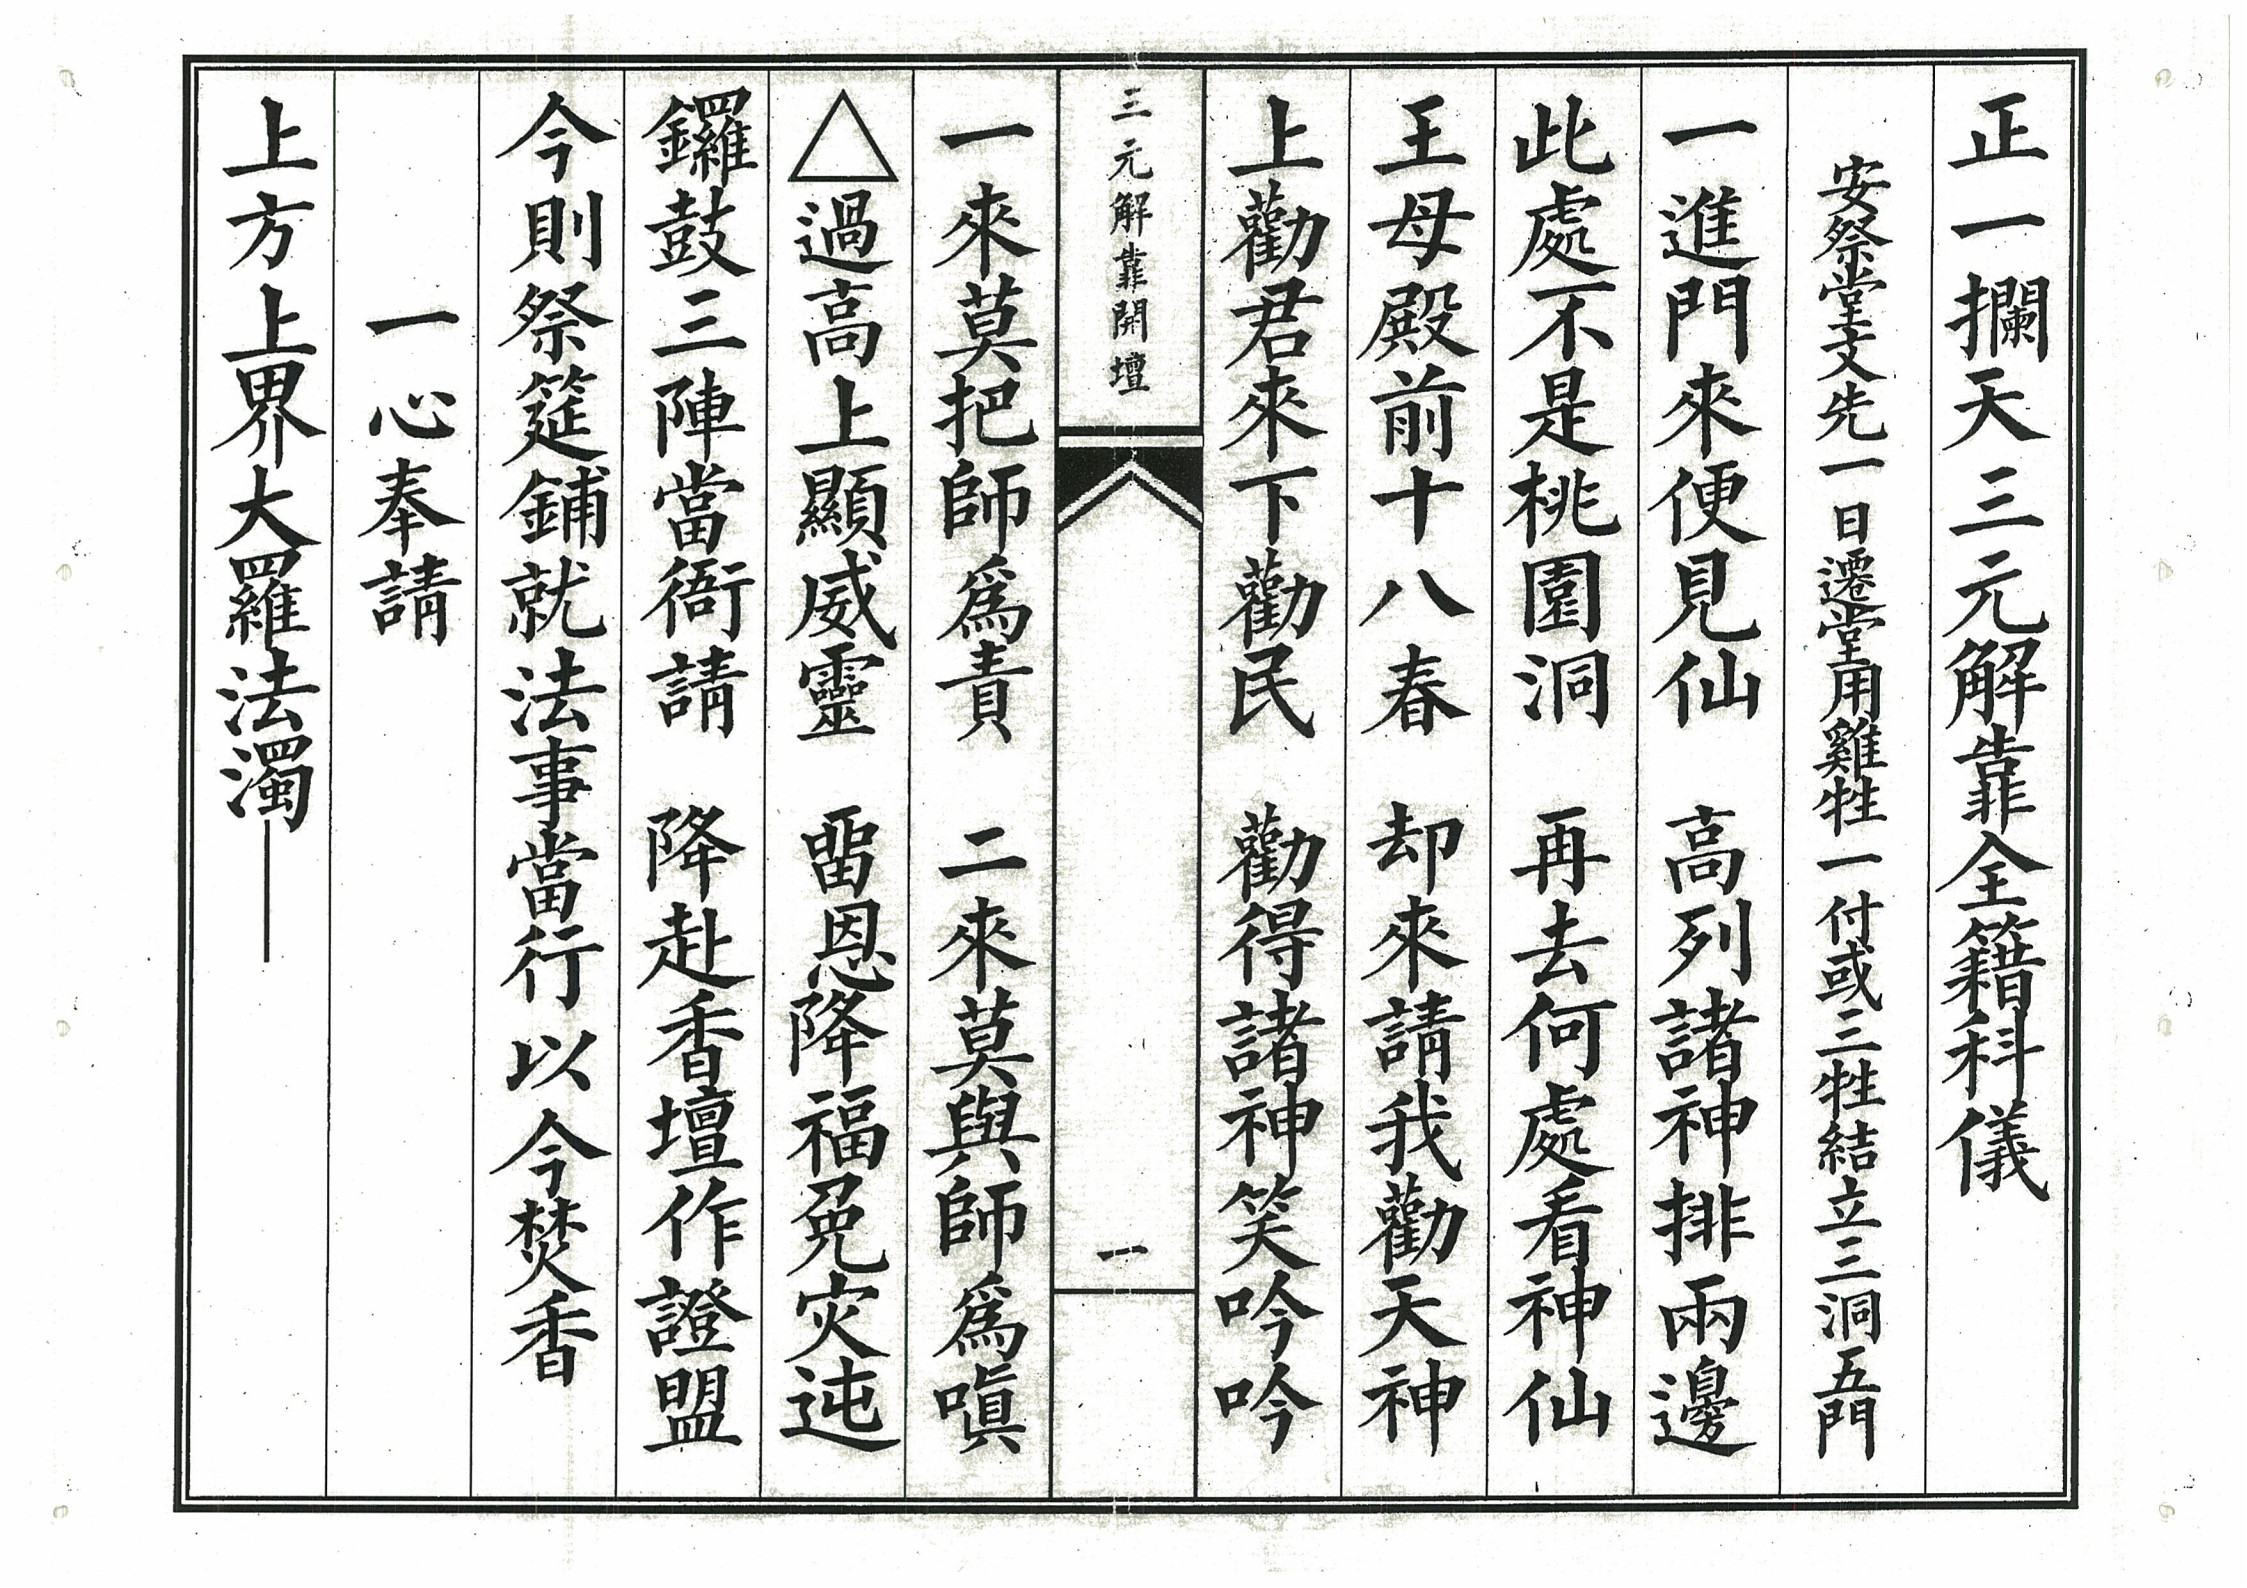 正一攔天三元解靠全籍科儀
安祭堂文先一日遷堂用雞牲一付或三牲結立三洞五門
一進門來便見仙　高列諸神排兩邊
此處不是桃園洞　再去何處看神仙
王母殿前十八春　却來請我勸天神
上勸君來下勸民　勸得諸神笑吟吟
三元解靠開壇
一
一來莫把師爲責　二來莫與師爲嗔
△過高上顯威靈　畱恩降福免灾迍
鑼鼓三陣當衙請　降赴香壇作證盟
今則祭筵鋪就法事當行以今焚香
一心奉請
上方上界大羅法濁——